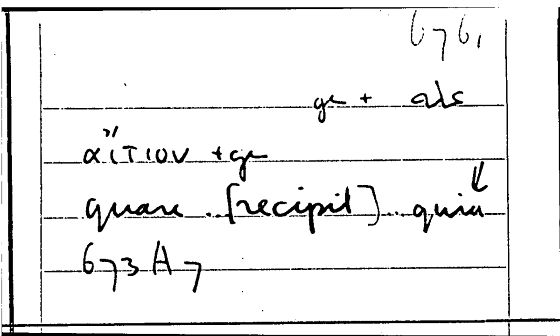 676,
ge + als
αἴτιον + ge
quare . [recipit] . quia ↓
673 A 7